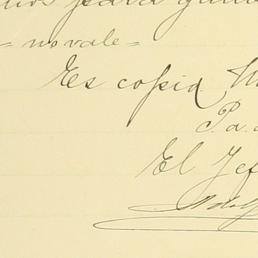 para
= no vale =
Es copia
P. a.
El Jef
Adolf